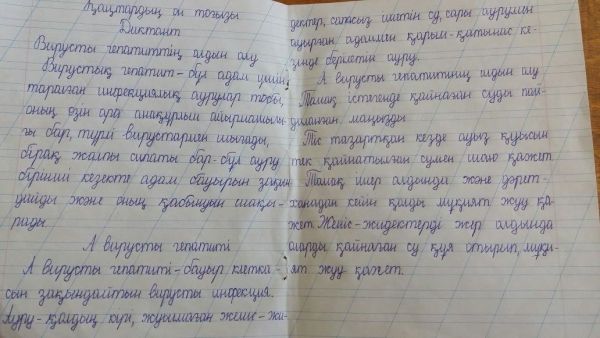 Қаңтардың он тоғызы
Диктант
Вирусты гепатиттің алдын алу
Вирустық гепатит - бұл адам үшін
таралған инфекциялық аурулар тобы,
оның өзін ара айырмашылы-
ғы бар, түрлі вирустармен шығады,
бірақ жалпы сипаты бар - бұл ауру
бірінші кезекте адам бауырын зақым-
дайды және оның қабынуын шақы-
рады.
А вирусты гепатиті
А вирусты гепатиті - бауыр клетка-
сын зақымдайтын вирусты инфекция.
Ауру - қолдың кірі, жуылмаған жеміс - жи-
дектер, сапасыз ішетін су, сары ауруымен
ауырған адаммен қарым - қатынас ке-
зінде берілетін ауру.
А вирусты гепатитінің алдын алу
Тамақ істегенде қайнаған суды пай-
даланған маңызды
Тіс тазартқан кезде ауыз қуысын
тек қайнатылған сумен шаю қажет
Тамақ ішер алдында және дәрет-
ханадан кейін қолды мұқият жуу қа-
жет. Жеміс - жидектерді жер алдында
оларды қайнаған су құя отырып, мұқи-
ят жуу қажет.